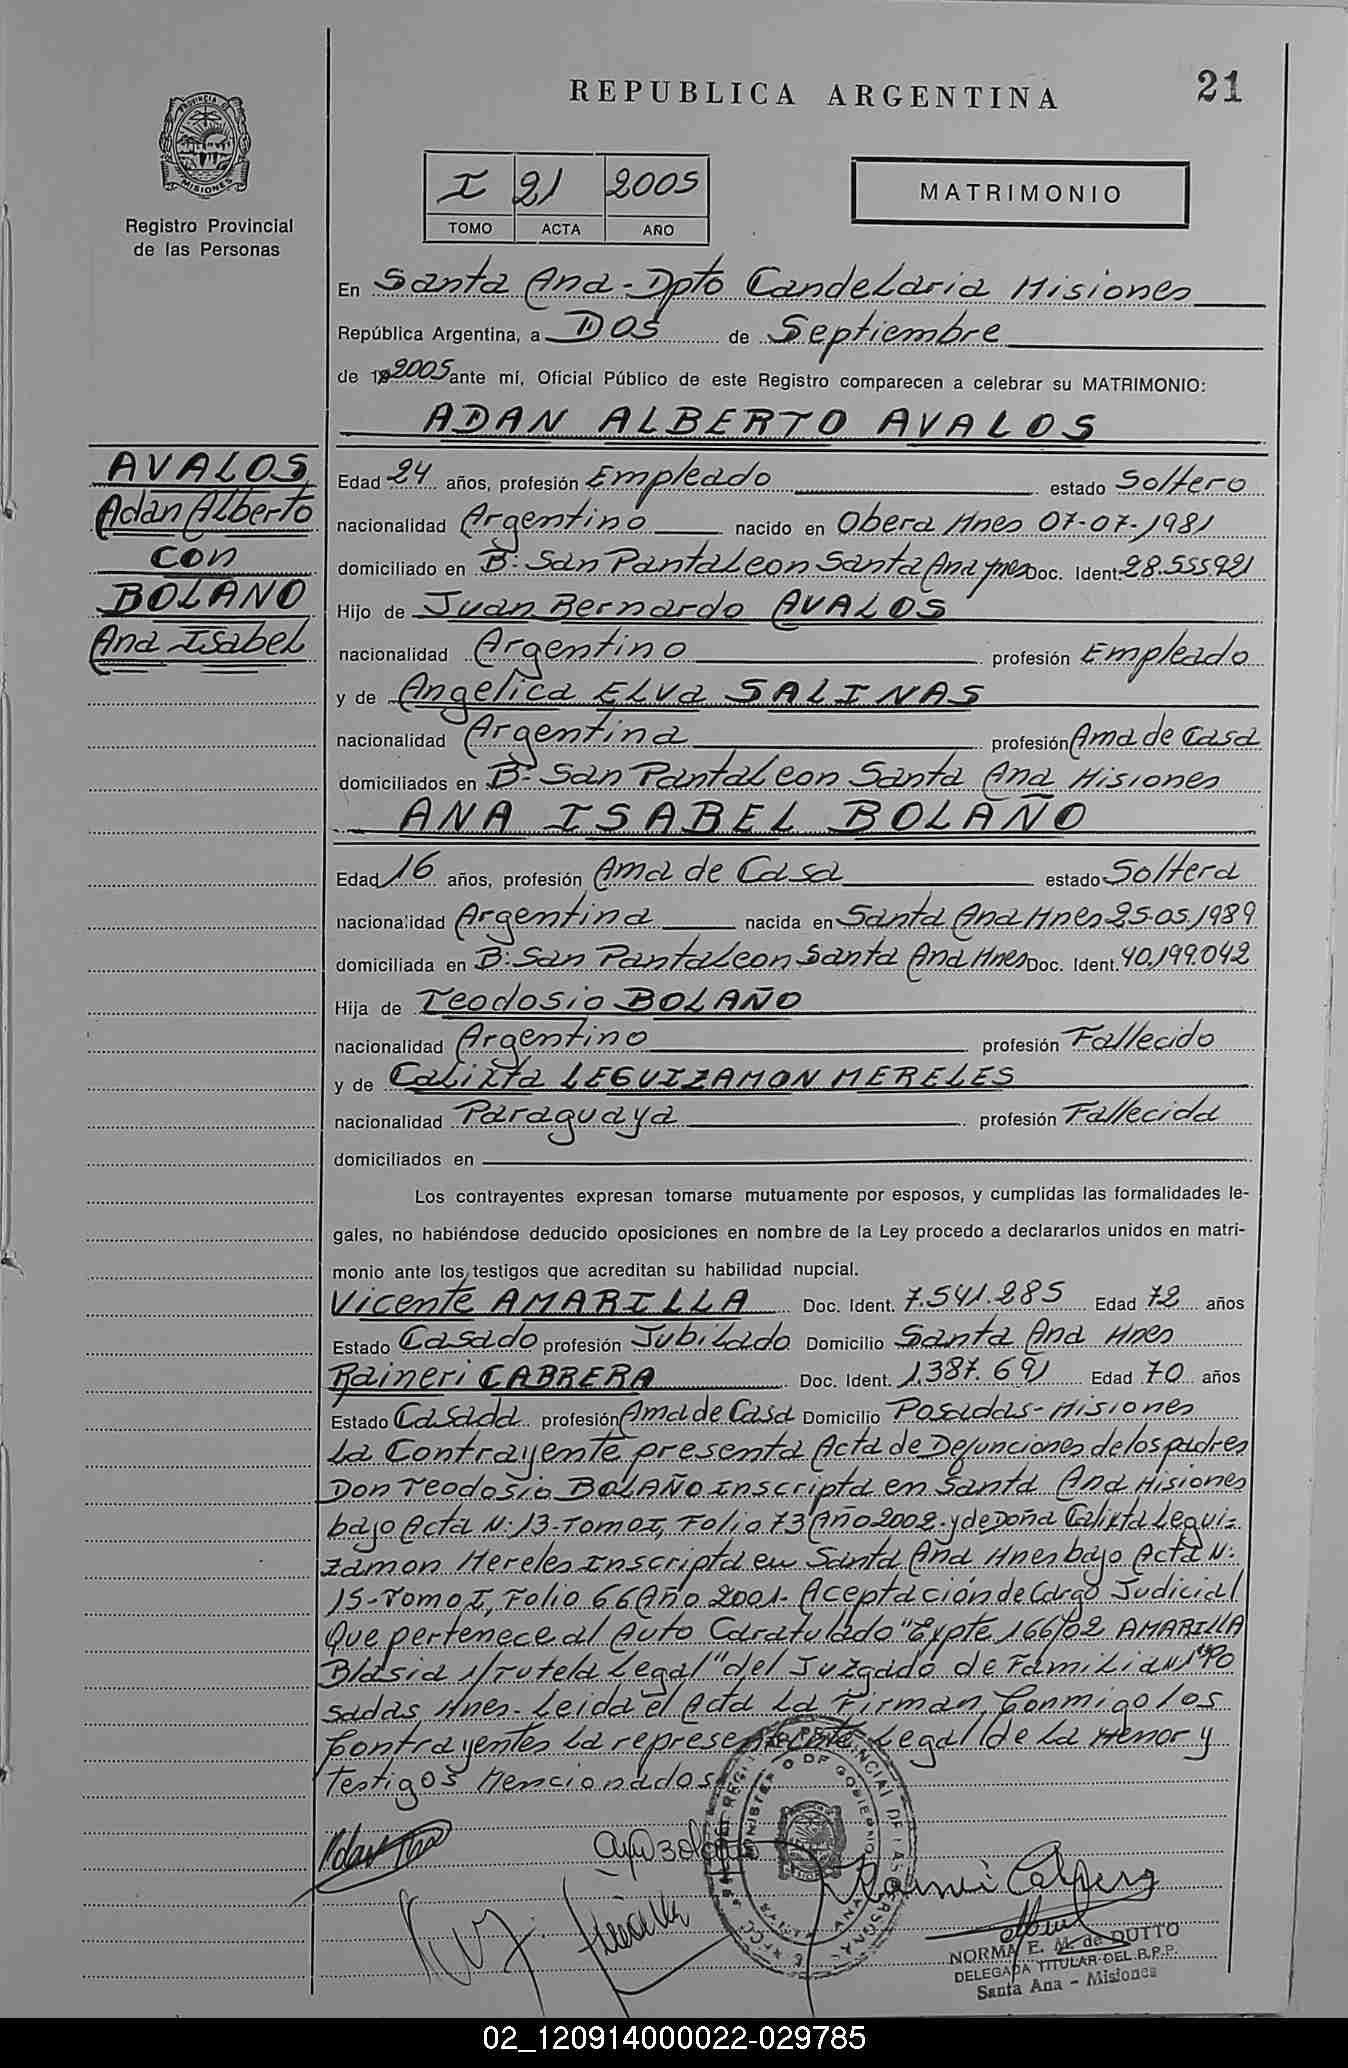 REPUBLICA ARGENTINA
21
PROVINCIA DE
MISIONES
Registro Provincial
de las Personas
I 21 2005
TOMO ACTA AÑO
MATRIMONIO
En Santa Ana - Dpto Candelaria Misiones
República Argentina, a DOS de Septiembre
de 2005 ante mí, Oficial Público de este Registro comparecen a celebrar su MATRIMONIO:
ADAN ALBERTO AVALOS
AVALOS
Adan Alberto
con
BOLAÑO
Ana Isabel
Edad 24 años, profesión Empleado estado Soltero
nacionalidad Argentino nacido en Obera Mnes 07-07-1981
domiciliado en B: San Pantaleon Santa Ana Mnes Doc. Ident. 28.555.921
Hijo de Juan Bernardo AVALOS
nacionalidad Argentino profesión Empleado
y de Angelica ELva SALINAS
nacionalidad Argentina profesión Ama de Casa
domiciliados en B: San Pantaleon Santa Ana Misiones
ANA ISABEL BOLAÑO
Edad 16 años, profesión Ama de Casa estado Soltera
nacionalidad Argentina nacida en Santa Ana Mnes 25.05.1989
domiciliada en B: San Pantaleon Santa Ana Mnes Doc. Ident. 40.199.042
Hija de Teodosio BOLAÑO
nacionalidad Argentino profesión Fallecido
y de Calixta LEGUIZAMON MERELES
nacionalidad Paraguaya profesión Fallecida
domiciliados en
Los contrayentes expresan tomarse mutuamente por esposos, y cumplidas las formalidades le-
gales, no habiéndose deducido oposiciones en nombre de la Ley procedo a declararlos unidos en matri-
monio ante los testigos que acreditan su habilidad nupcial.
Vicente AMARILLA Doc. Ident. 7.541.285 Edad 72 años
Estado Casado profesión Jubilado Domicilio Santa Ana Mnes
Raineri CABRERA Doc. Ident. 1.387.691 Edad 70 años
Estado Casada profesión Ama de Casa Domicilio Posadas - Misiones
La Contrayente presenta Acta de Defunciones de los padres
Don Teodosio BOLAÑO Inscripta en Santa Ana Misiones
bajo Acta N: 13-Tomo I, Folio 73 Año 2002. y de Doña Calixta Legui=
zamon Mereles Inscripta en Santa Ana Mnes bajo Acta N:
15-Tomo I, Folio 66 Año 2001- Aceptación de Cargo Judicial
Que pertenece al Auto Caratulado "Expte 166/02 AMARILLA
Blasia s/Tutela Legal" del Juzgado de Familia N:1 Po
sadas Mnes- Leida el Acta La Firman Conmigo los
Contrayentes La representante Legal de La Menor y
Testigos Mencionados
NORMA E. M. de DUTTO
DELEGADA TITULAR DEL R.P.P.
Santa Ana - Misiones
02_120914000022-029785